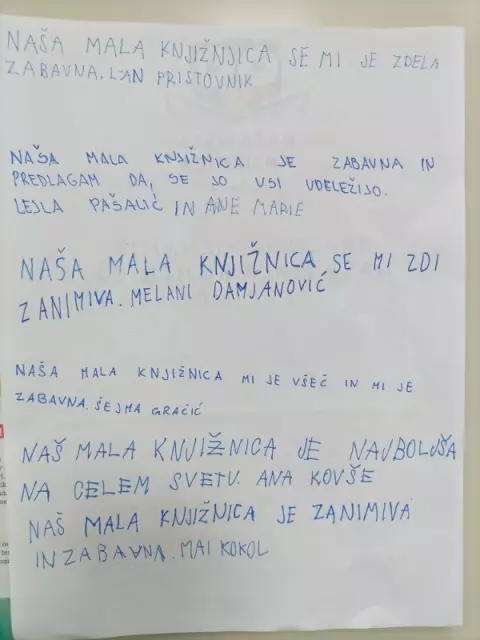 NAŠA MALA KNJIŽNJICA SE MI JE ZDELA
ZABAVNA. LAN PRISTOVNIK
NAŠA MALA KNJIŽNICA JE ZABAVNA IN
PREDLAGAM DA, SE JO VSI UDELEŽIJO.
LEJLA PAŠALIĆ IN ANE MARIE
NAŠA MALA KNJIŽNICA SE MI ZDI
ZANIMIVA. MELANI DAMJANOVIĆ
NAŠA MALA KNJIŽNICA MI JE VŠEČ IN MI JE
ZABAVNA. ŠEJMA GRAČIĆ
NAŠ MALA KNJIŽNICA JE NAJBOLJŠA
NA CELEM SVETU. ANA KOVŠE
NAŠ MALA KNJIŽNICA JE ZANIMIVA
IN ZABAVNA. MAI KOKOL